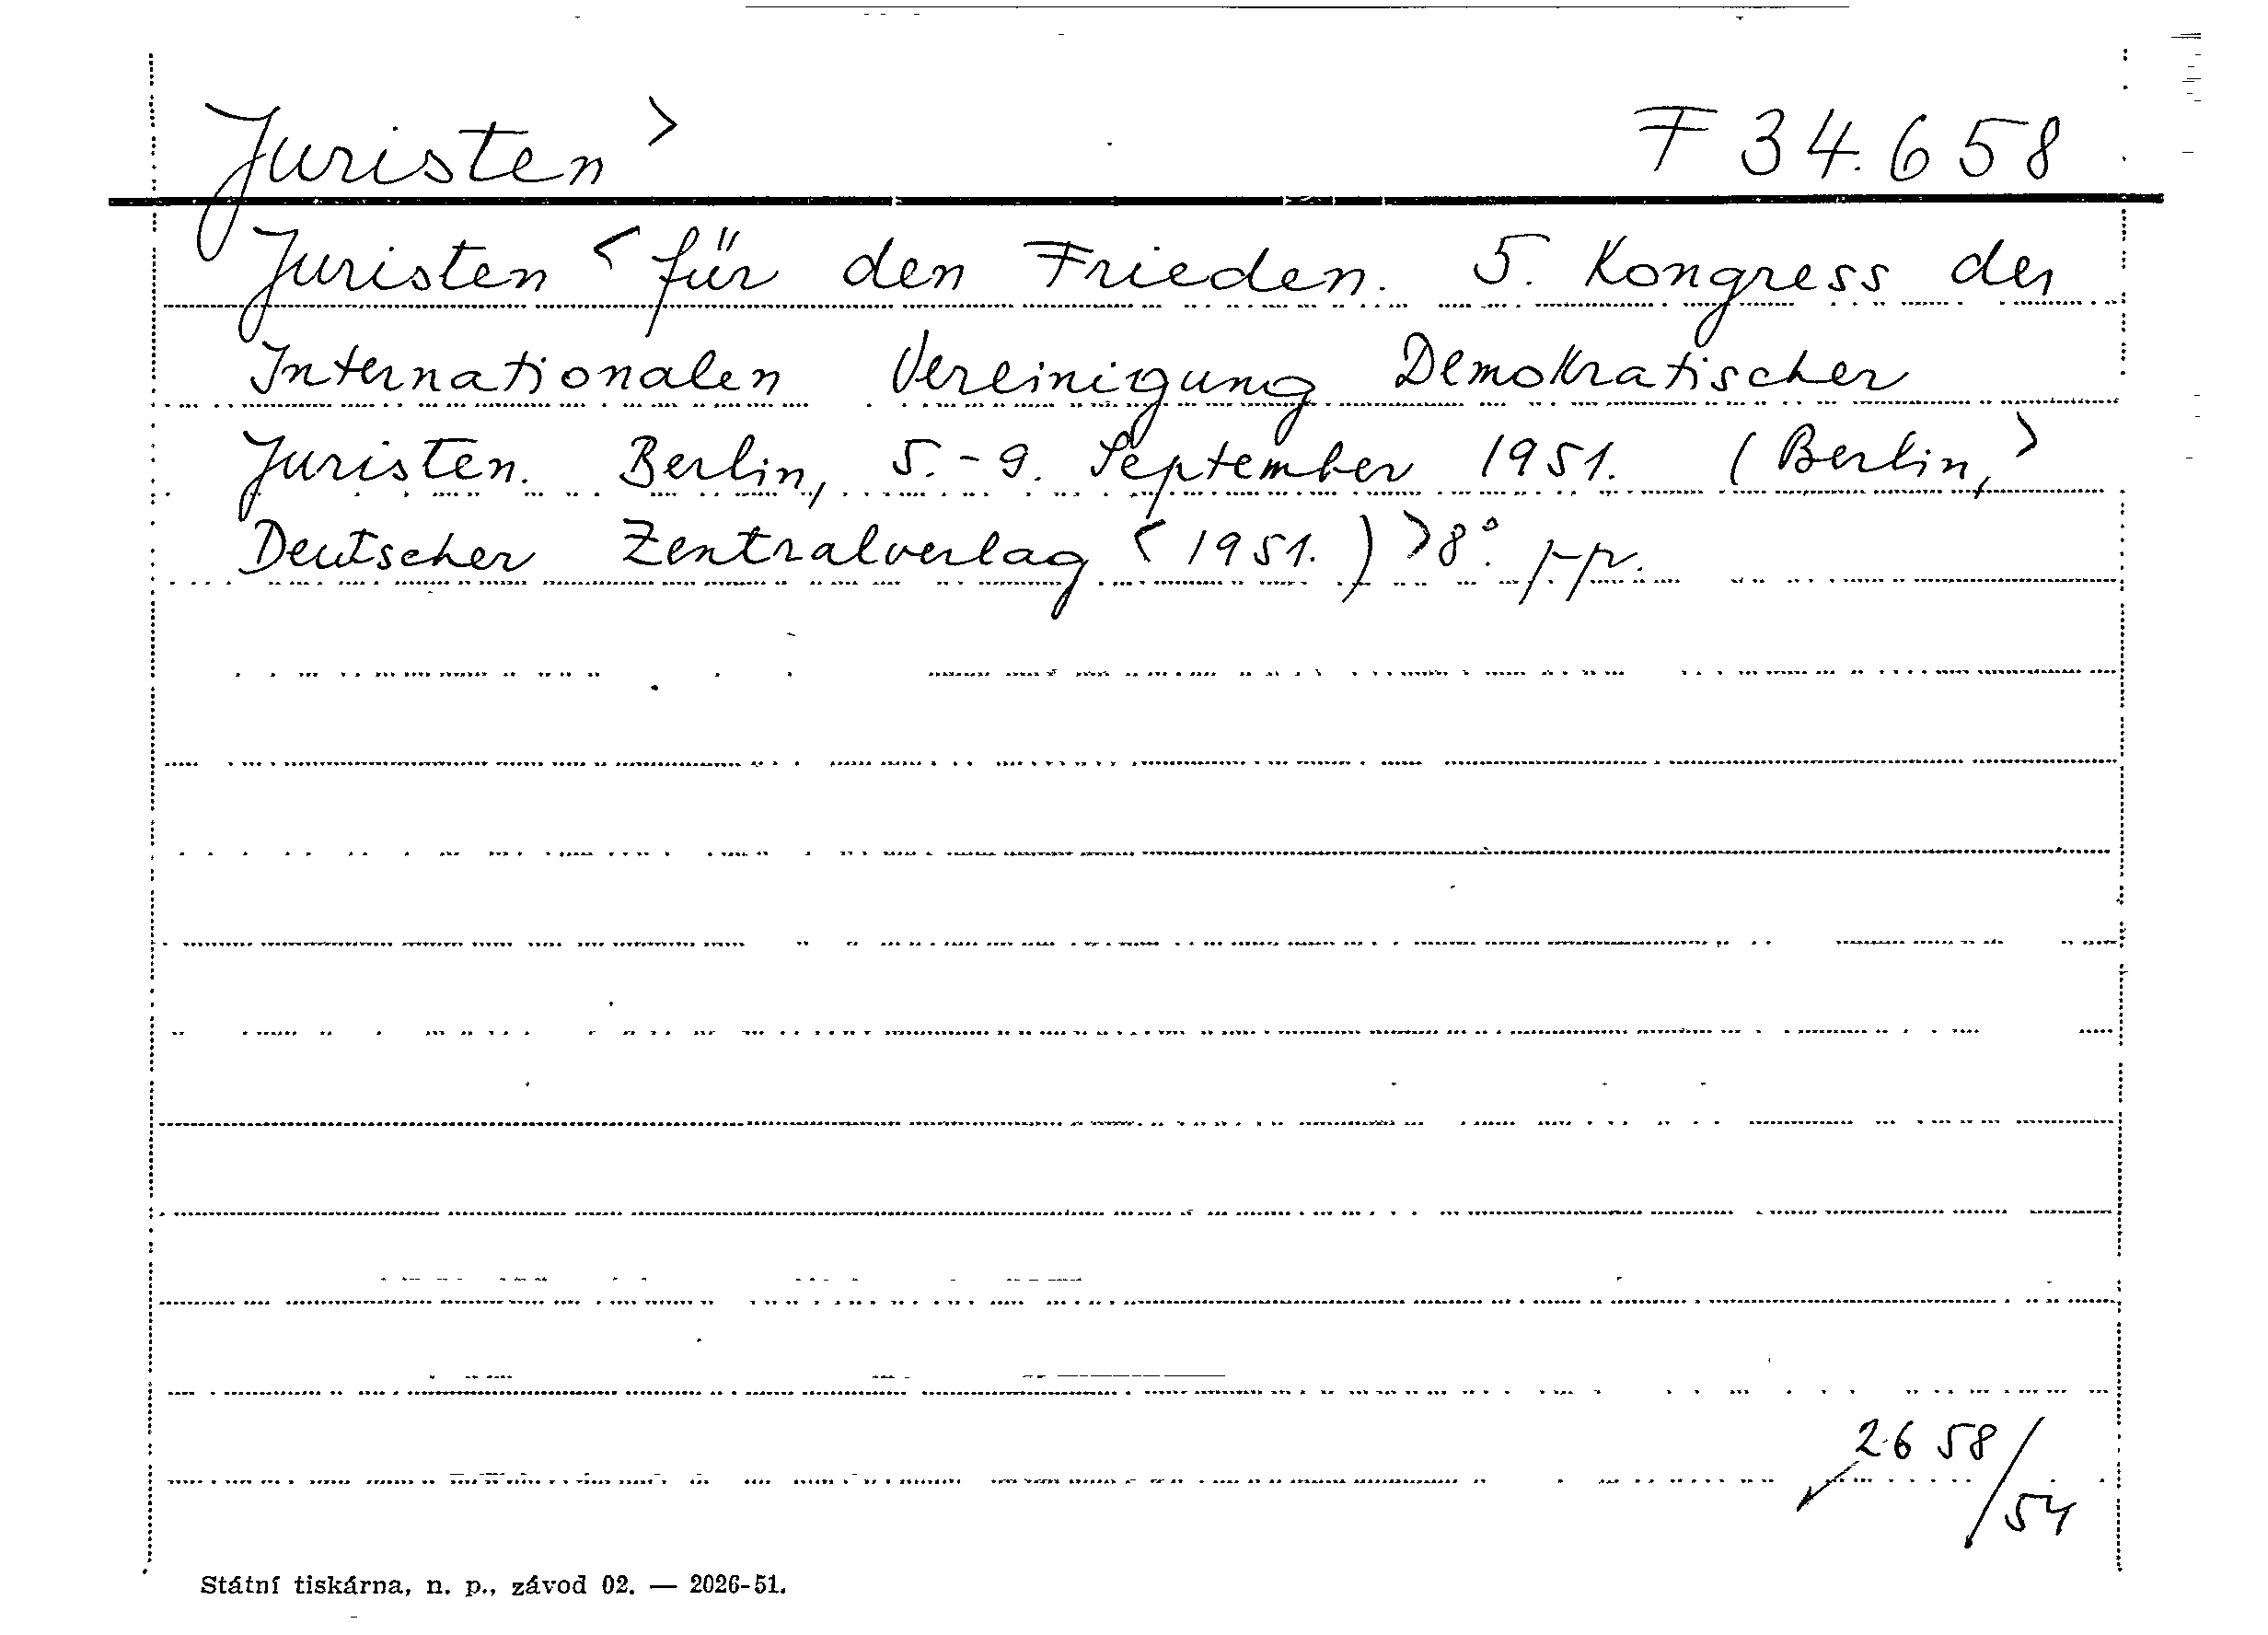 Juristen > F 34.658
Juristen < für den Frieden. 5. Kongress der
Internationalen Vereinigung Demokratischer
Juristen. Berlin, 5.-9. September 1951. (Berlin, >
Deutscher Zentralverlag < 1951.) > 8°. pp.
2658/54
Státní tiskárna, n. p., závod 02. — 2026-51.